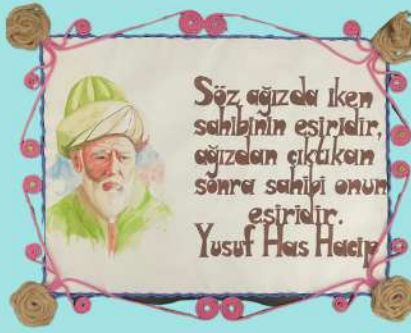 Söz ağızda iken
sahibinin esiridir,
ağızdan çıktıkan
sonra sahibi onun
esiridir.
Yusuf Has Hacip